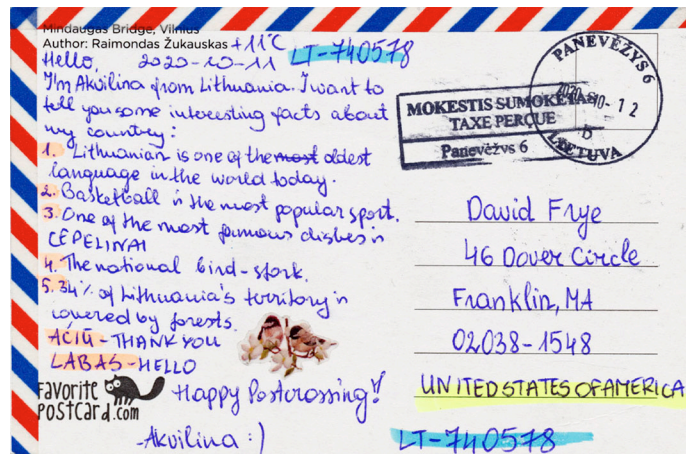 Mindaugas Bridge, Vilnius
Author: Raimondas Žukauskas +11°C
Hello, 2020-10-11 LT-740578
I'm Akvilina from Lithuania. I want to
tell you some interesting facts about
my country:
1. Lithuanian is one of the most oldest
language in the world today.
2. Basketball is the most popular sport.
3. One of the most famous dishes is
CEPELINAI
4. The national bird-stork.
5. 34% of Lithuania's territory is
covered by forests.
AČIŪ-THANK YOU
LABAS-HELLO
FAVORITE
POSTCARD.com
Happy Postcrossing!
-Akvilina :)
MOKESTIS SUMOKĖTAS
TAXE PERÇUE
Panevėžys 6
PANEVĖŽYS 6
2020-10-12
b
LIETUVA
David Frye
46 Dover Circle
Franklin, MA
02038-1548
UNITED STATES OF AMERICA
LT-740578